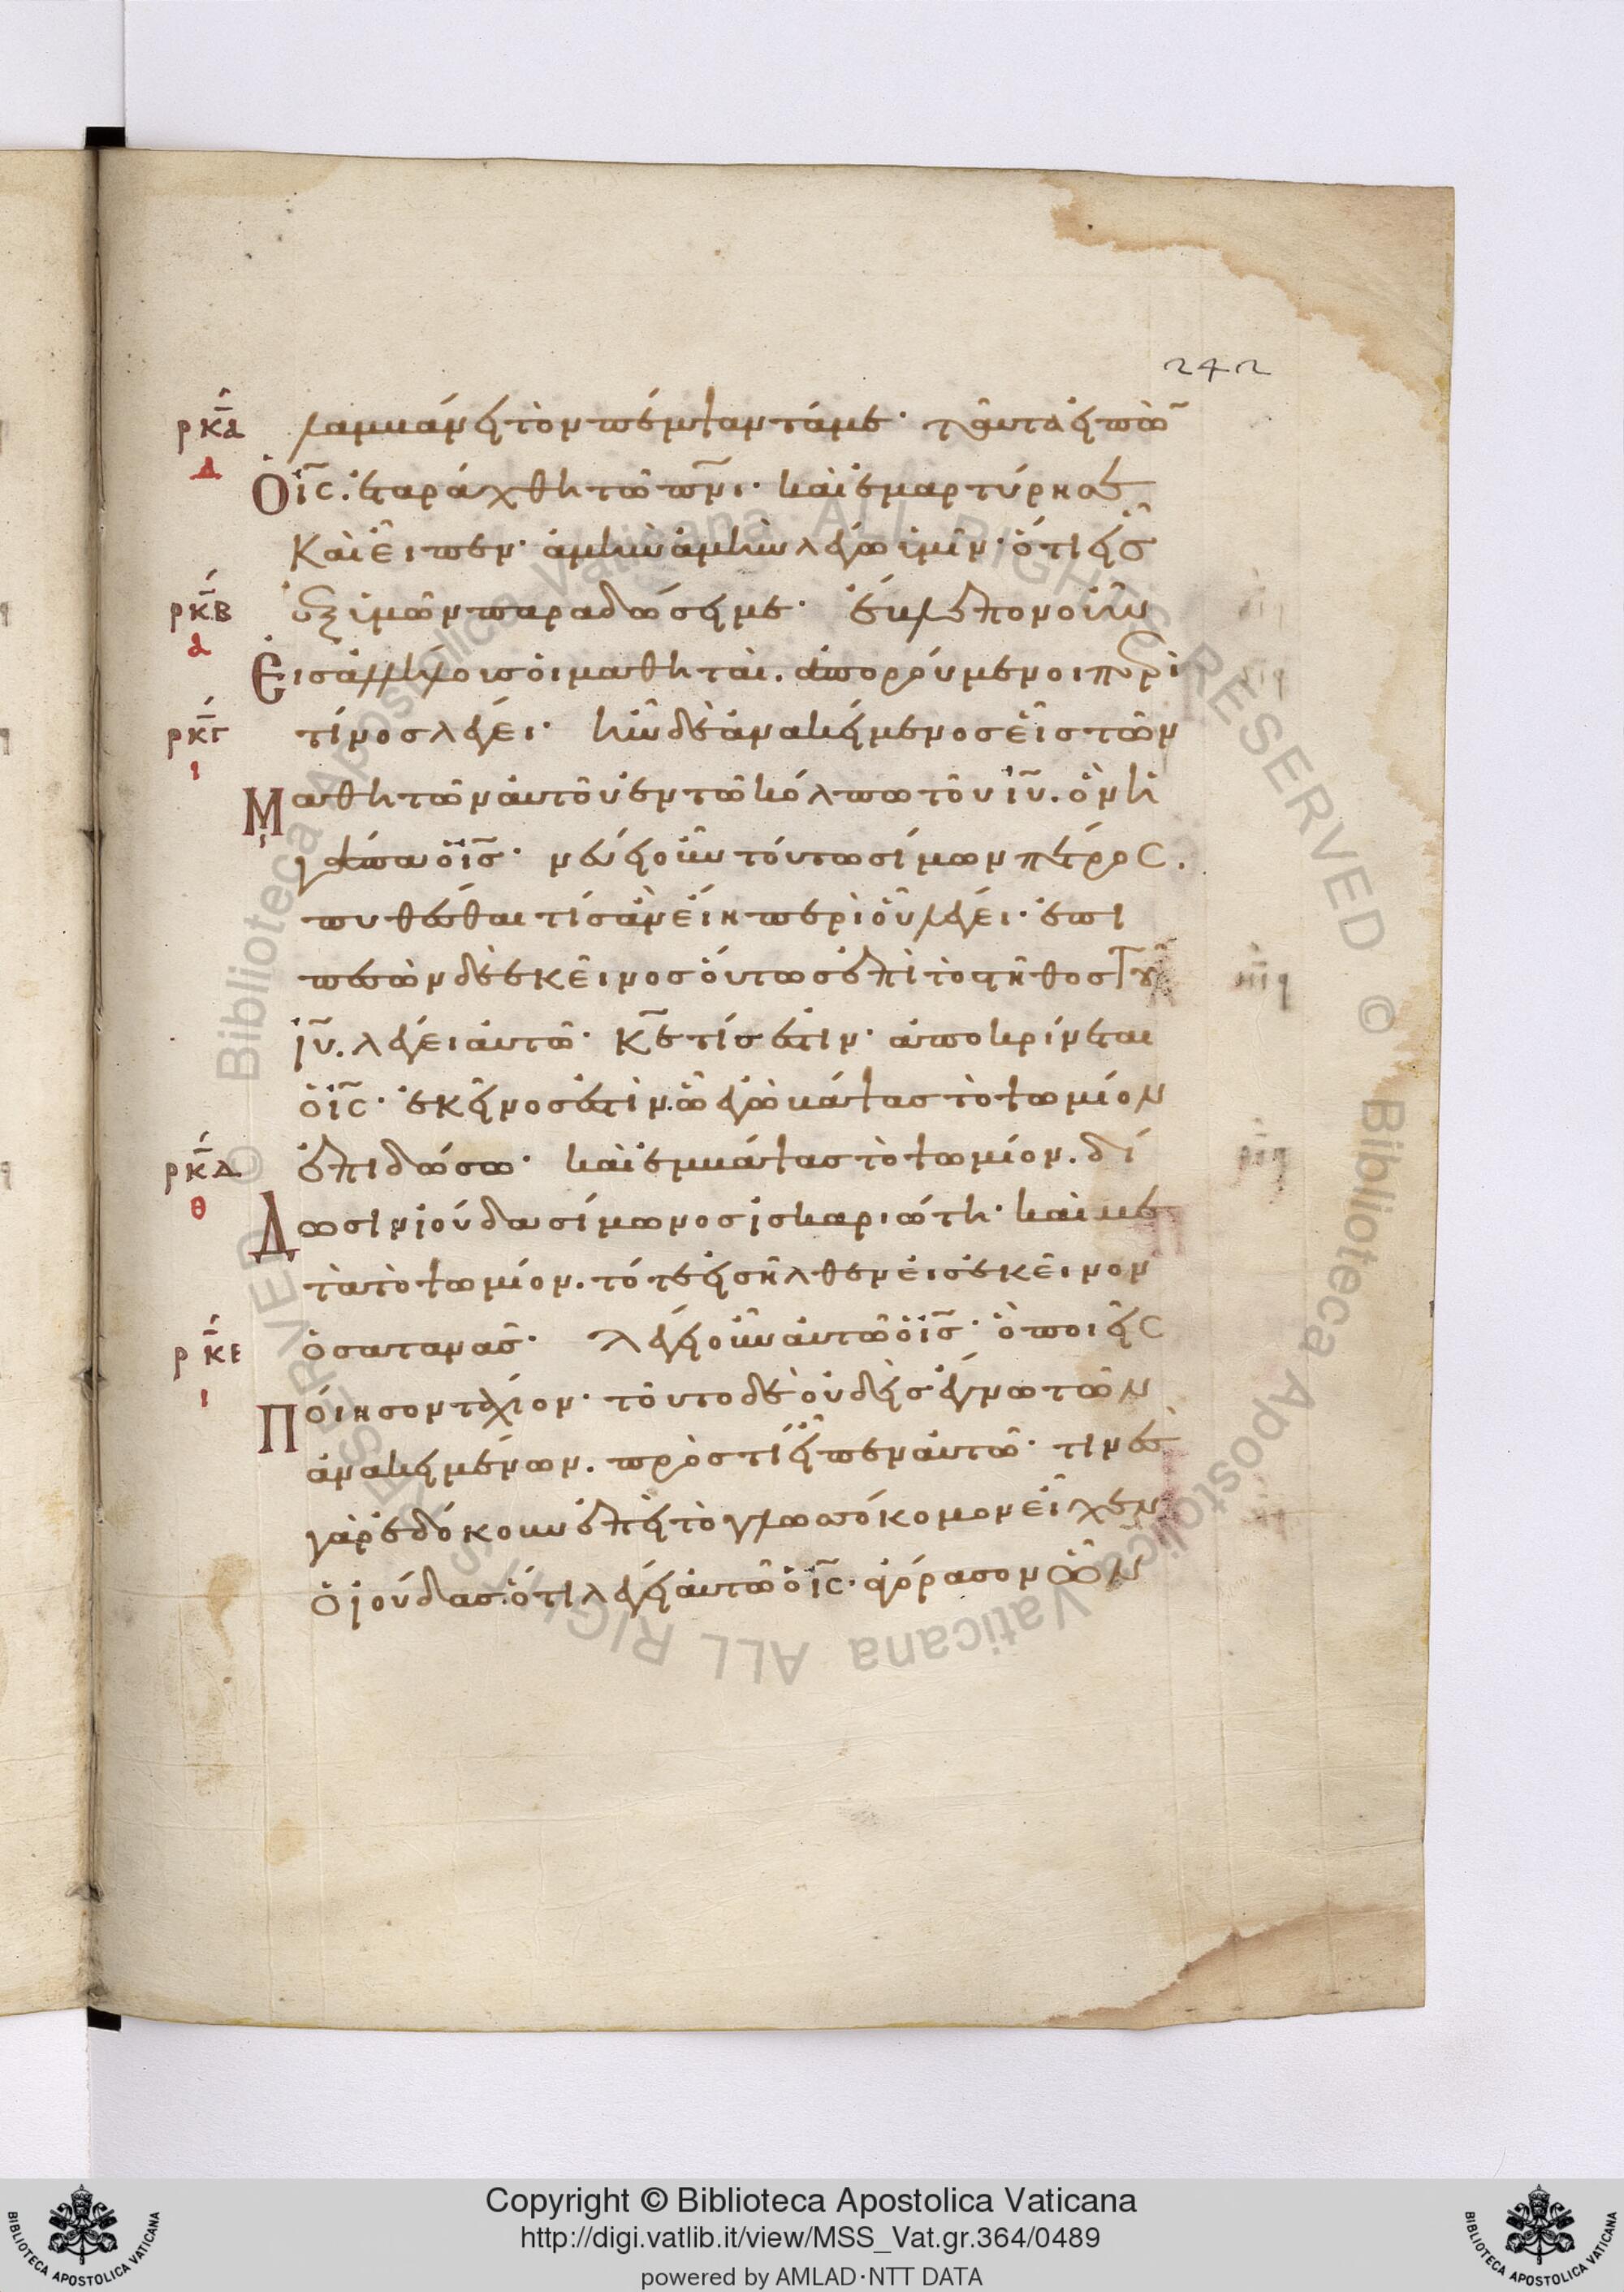 242
ρκα λαμβάνει τὸν πέμψαντά με· ταῦτα εἰπὼ
δ Ὁ ις. ἐταράχθη τῶ πνι· καὶ ἐμαρτύρησε
Καὶ εἶπεν· ἀμὴν ἀμὴν λέγω ὑμῖν· ὅτι εἷς
ρκβ ἐξ ὑμῶν παραδώσει με· ἔβλεπον οὖν
α Εἰς ἀλλήλους οἱ μαθηταί. ἀπορούμενοι περὶ
ρκγ τίνος λέγει· ἦν δὲ ἀνακείμενος εἷς τῶν
ι Μαθητῶν αὐτοῦ ἐν τῶ κόλπω τοῦ ιυ. ὃν ἠ
γάπα ὁ ις· νεύει οὖν τούτω σίμων πέτρος.
πυθέσθαι τίς ἂν εἴη περὶ οὗ λέγει· ἐπι
πεσὼν δὲ ἐκεῖνος οὕτως ἐπὶ τὸ στῆθος τοῦ
ιυ. λέγει αὐτῶ· κε τίς ἐστιν· ἀποκρίνεται
ὁ ις· ἐκεῖνος ἐστὶν. ὧ ἐγὼ βάψας τὸ ψωμίον
ρκδ ἐπιδώσω· καὶ ἐμβάψας τὸ ψωμίον. δί
θ Δωσιν ἰούδα σίμωνος ἰσκαριώτη· καὶ με
τὰ τὸ ψωμίον. τότε εἰσῆλθεν εἰς ἐκεῖνον
ρκε ὁ σατανας· λέγει οὖν αὐτῶ ὁ ις· ὃ ποιεῖς
ι Ποίησον τάχιον· τοῦτο δὲ οὐδεὶς ἔγνω τῶν
ἀνακειμένων. πρὸς τί εἶπεν αὐτῶ· τινὲς
γὰρ ἐδόκουν ἐπεὶ τὸ γλωσσόκομον εἶχεν
ὁ ἰούδας. ὅτι λέγει αὐτῶ ὁ ις· ἀγόρασον ὧν
Copyright © Biblioteca Apostolica Vaticana
http://digi.vatlib.it/view/MSS_Vat.gr.364/0489
powered by AMLAD·NTT DATA
BIBLIOTECA APOSTOLICA VATICANA
BIBLIOTECA APOSTOLICA VATICANA